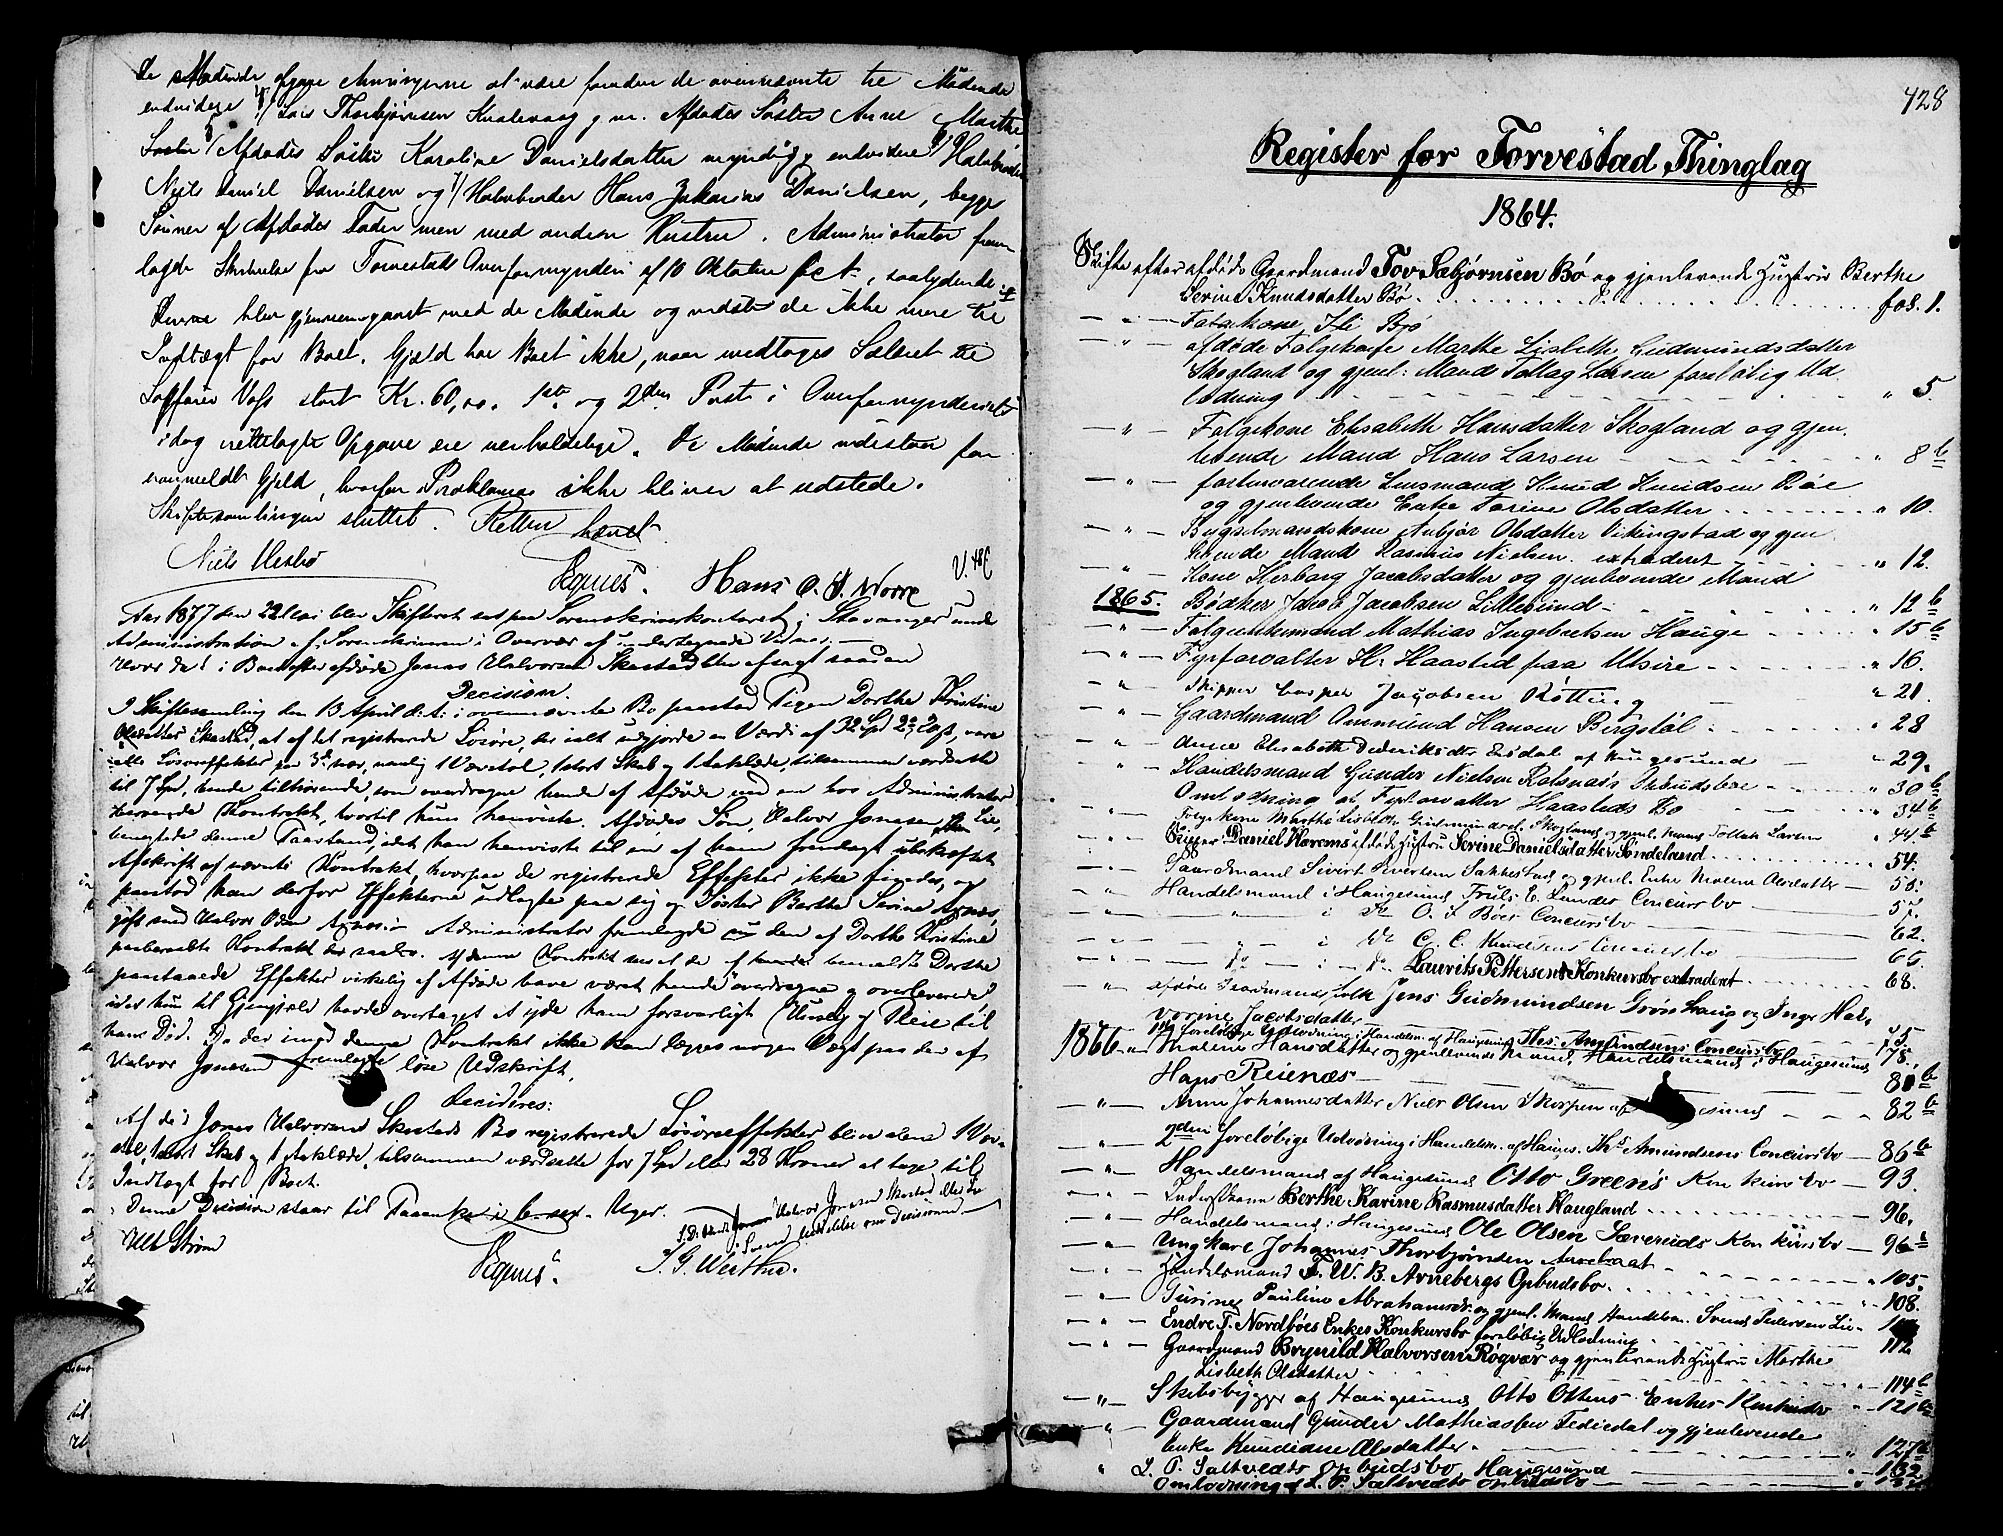 De Mødende opgave Arvingerne at være foruden de ovennævnte tre Mødende
endvidere 4/ Lars Thorbjørnsen Kvalevaag g. m. Afdødes Søster Anne Marthe
5/ Afdødes Søster Karoline Danielsdatter myndig, endvidere 6/ Halvbroder
Niels Daniel Danielsen og 7/ Halvbroder Hans Zakarias Danielsen, begge
Sønner af Afdødes Fader men med anden Hustru. Administrator frem-
lagde Skrivelse fra Torvestads Overformynderi af 10 Oktober f.A., saalydende
Denne blev gjennemgaaet med de Mødende og vidste de ikke mere til
Indtægt for Boet. Gjæld har Boet ikke, naar undtages Salæret til
Kr. 60,00. 1ste og 2den Post i Overformynderiets
idag fremlagte Opgave ere uerholdelige. De Mødende indestaar for
uanmeldt Gjæld, hvorfor Proklama ikke bliver at udstede.
Skiftesamlingen sluttet. Retten hævet.
Niels Vestbø
Egnes. Hans O. S. Norre
V. 48
Aar 1877 den 22 Mai blev Skifteret sat paa Sorenskriverkontoret i Stavanger under
Administration af Sorenskriveren i Overvær af undertegnede Vidner.
Hvor da: i Boet efter afdøde Jonas Halvorsen Skastad blev afsagt saadan
Decision.
I Skiftesamling den 13 April d. A. i ovennævnte Bo paastod Pigen Dorthe Kristine
Olsdatter Skastad, at af det registrerede Løsøre, der ialt udgjorde en Værdi af 32 Spd 2 20 s, vare
alle Løsøreffekter No 3 nær, nemlig 1 Vævstol, 1 stort Skab og 1 Aaklæde, tilsammen værdsatte
til 7 Spd, hende tilhørende, som overdragne hende af Afdøde ved en hos Administrator
beroende Kontrakt, hvortil hun henviste. Afdødes Søn, Halvor Jonassen Lie,
benegtede denne Paastand, idet han henviste til en af ham fremlagt ubekræftet
Afskrift af nævnte Kontrakt, hvorpaa de registrerede Effekter ikke findes, og
paastod han derfor Effekterne udlagte paa sig og Søster Berthe Serine Agnes,
gift med Halvor Administrator fremlagde nu den af Dorthe Kristine
paaberaabte Kontrakt der Af denne Kontrakt sees at de af hende bemeldte Dorthe
paastaaede Effekter virkelig af Afdøde have været hende overdragne og overleverede
idet hun til Gjengjeld havde overtaget at yde ham forsvarligt Huusly og Pleie til
hans Død. Da der imod denne Kontrakt ikke kan lægges nogen Vægt paa den af
Halvor Jonassen fremlagte løse Udskrift,
Decideres:
Af de i Jonas Halvorsen Skastads Bo registrerede Løsøreffekter blive alene 1 Væv-
stol, 1 stort Skab og 1 Aaklæde, tilsammen værdsatte for 7 Spd eller 28 Kroner at tage til
Indtægt for Boet.
Denne Decision staar til Paaanke i 6 – sex – Uger.
Halvor Jonassen Skastad eller Lie
om Decisionen
Ulr Strøm
Egnes. S. G. Werthus.
428
Register for Torvestad Thinglag
1864.
Skifte efter afdøde Gaardmand Tov Sæbjørnsen Bø og gjenlevende Hustru Berthe
Serine Knudsdatter Bø . . . fol. 1.
— " — Følgekone, Ili Bø
— " — afdøde Følgekone Marthe Lisbeth Gudmundsdatter
Skogland og gjenl: Mand Tollag Larsen foreløbig Ud-
lodning " 5
— " — Følgekone Elisabeth Hansdatter Skogland og gjen-
levende Mand Hans Larsen " 8 b
— " — forhenværende Lensmand Knud Knudsen Bøe
og gjenlevende Enke Torine Olsdatter " 10.
— " Bygselmandskone Anbjør Olsdatter Vikingstad og gjen-
levende Mand Rasmus Nielsen. extraderet " 12.
— " — Kone Herborg Jacobsdatter og gjenlevende Mand
1865. Bødker Jacob Jacobsen Lillesund " 12 b
— " — Følgeenkemand Mathias Ingebretsen Hauge " 15 b
— " — Fyrforvalter H. Haasted paa Utsire " 16.
— " — Skipper Casper Jacobsen Røtting — " 21.
— " — Gaardmand Ommund Hansen Bergstøl " 28
— " Anne Elisabeth Dideriksdtr Eisdal af Haugesund — " 29.
— " — Handelsmand Gunder Nielsen Ratsnæs Opbudsboe " 30 b
Omlodning af Fyrforvalter Haasteds Bo — " 34 b
— " Følgekone Marthe Lisbeth Gudmundsd. Skogland og gjenl. Mand Tollak Larsen " 44 b
— " — Skipper Daniel Havems afdøde Hustru Serine Danielsdatter Søndeland 54.
— " — Gaardmand Sivert Sivertsen Sakkestad og gjenl. Enke Malene Olsdatter — 55.
— " — Handelsmand i Haugesund Friis E. Lunder Concursbo 57.
— " — " — i Do O. S. Bøes Concursbo 62.
— " — " — i Do C. C. Knudsens Concursbo 66.
— " — Do — i — Do Laurits Pettersens Konkursbo extraderet 68.
— " afdøde Gaardmandsfolk Jens Gudmundsen Grønskaug og Inger Hal-
vorine Jacobsdatter " 75.
1ste foreløbige Udlodning i Handelsm. af Haugesund Ths. Amundsens Concursbo 78.
1866 " Malene Hansdatter og gjenlevende Mand, Handelsmand i Haugesund
Hans Reienæs — 81 b
— " — Anne Johannesdatter Niels Olsen Skorpen af Haugesund 82 b
— " 2den foreløbige Udlodning i Handelsm. af Hauges. Ths Amundsens Concursbo — 86 b
— " — Handelsmand af Haugesund Otto Greens Konkursbo — 93.
— " — Inderstkone Berthe Karine Rasmusdatter Haugland 96.
— " — Handelsmand i Haugesund Ole Olsen Sæveruds Konkursbo — 96 b
— " — Ungkarl Johannes Thorbjørnsen Aarebraat
— " — Handelsmand F. W. B. Arnebergs Opbudsbo " 105
— " — Gurine Pauline Abrahamsd. og gjenl. Mand Handelsm. Svend Pedersen Lie " 108.
— " — Endre T. Nordbøes Enkes Konkursbo foreløbig Udlodning
— " — Gaardmand Brynild Halvorsen Røgvær og gjenlevende Hustru Marthe 112
Lisbeth Olsdatter — 114 b
— " Skibsbygger af Haugesund Otto Ottens Enkes Konkursbo " 121 b
— " Gaardmand Gunder Mathiassen Fediedal og gjenlevende
Enke Kundiane Olsdatter. " 127 b
" L. P. Saltvedts Opbudsbo Haugesund " 132
Omlodning af L. P. Saltvedts Opbudsbo — " 132